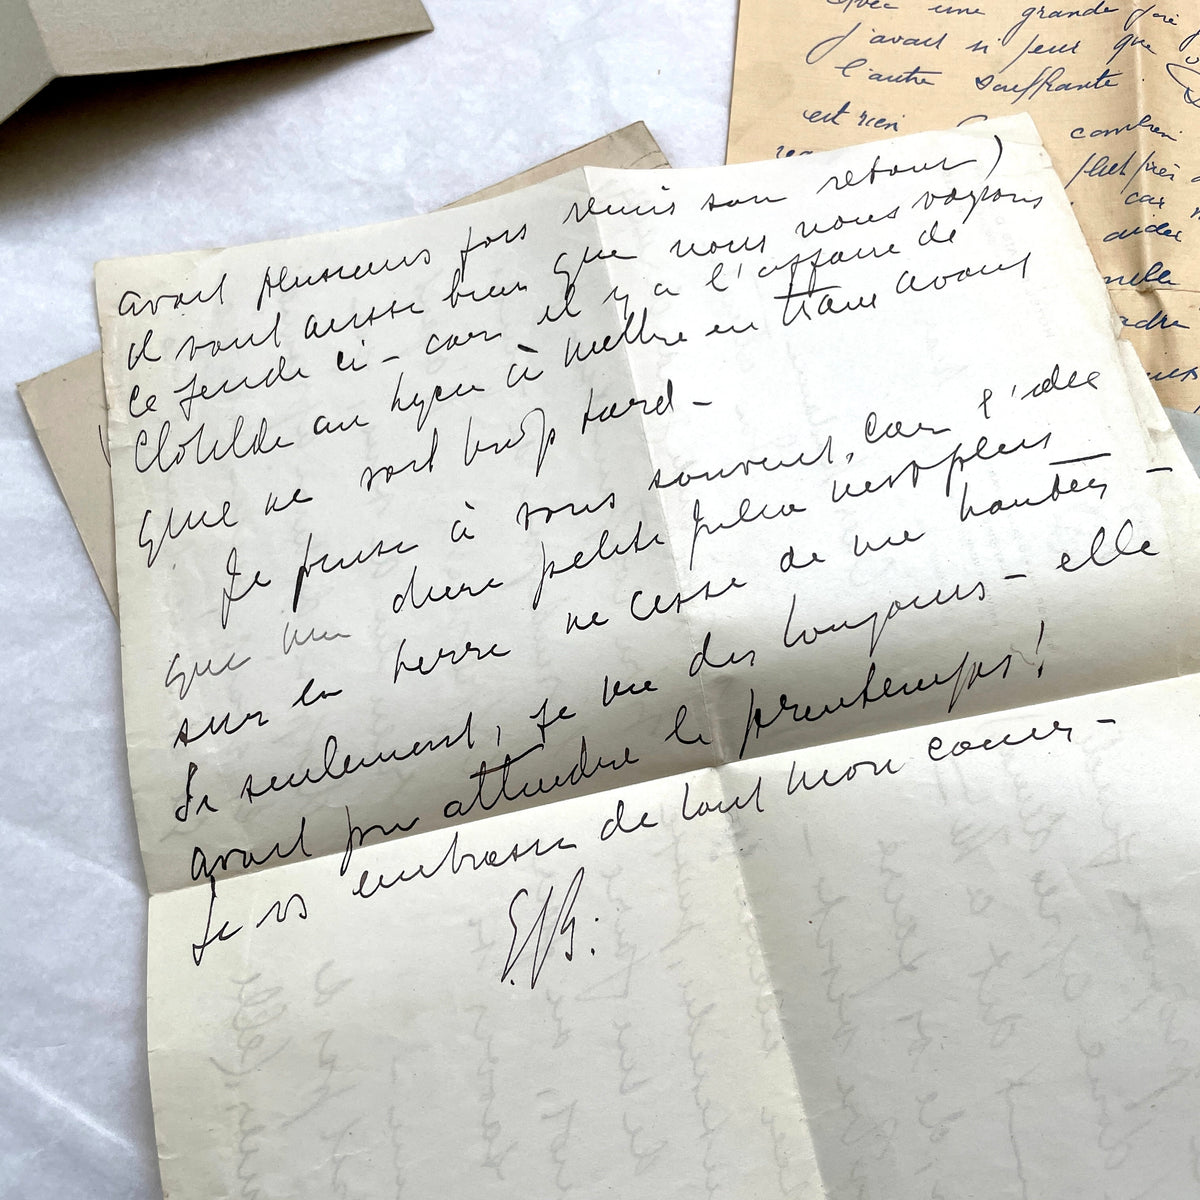 avait plusieurs fois remis son retour)
il vaut aussi bien que nous nous voyons
ce jeudi ci – car il y a l'affaire de
Clotilde au lycée à mettre en train avant
que ne soit trop tard –
Je pense à vous souvent, car l'idée
que ma chère petite Julia n'est plus
sur la terre ne cesse de me hanter –
Si seulement, je me dis toujours – elle
avait pu attendre le printemps!
Je vs embrasse de tout mon cœur –
avec une grande joie
j'avais si peur que
l'autre souffrante
est rien combien
plus près
car
aider